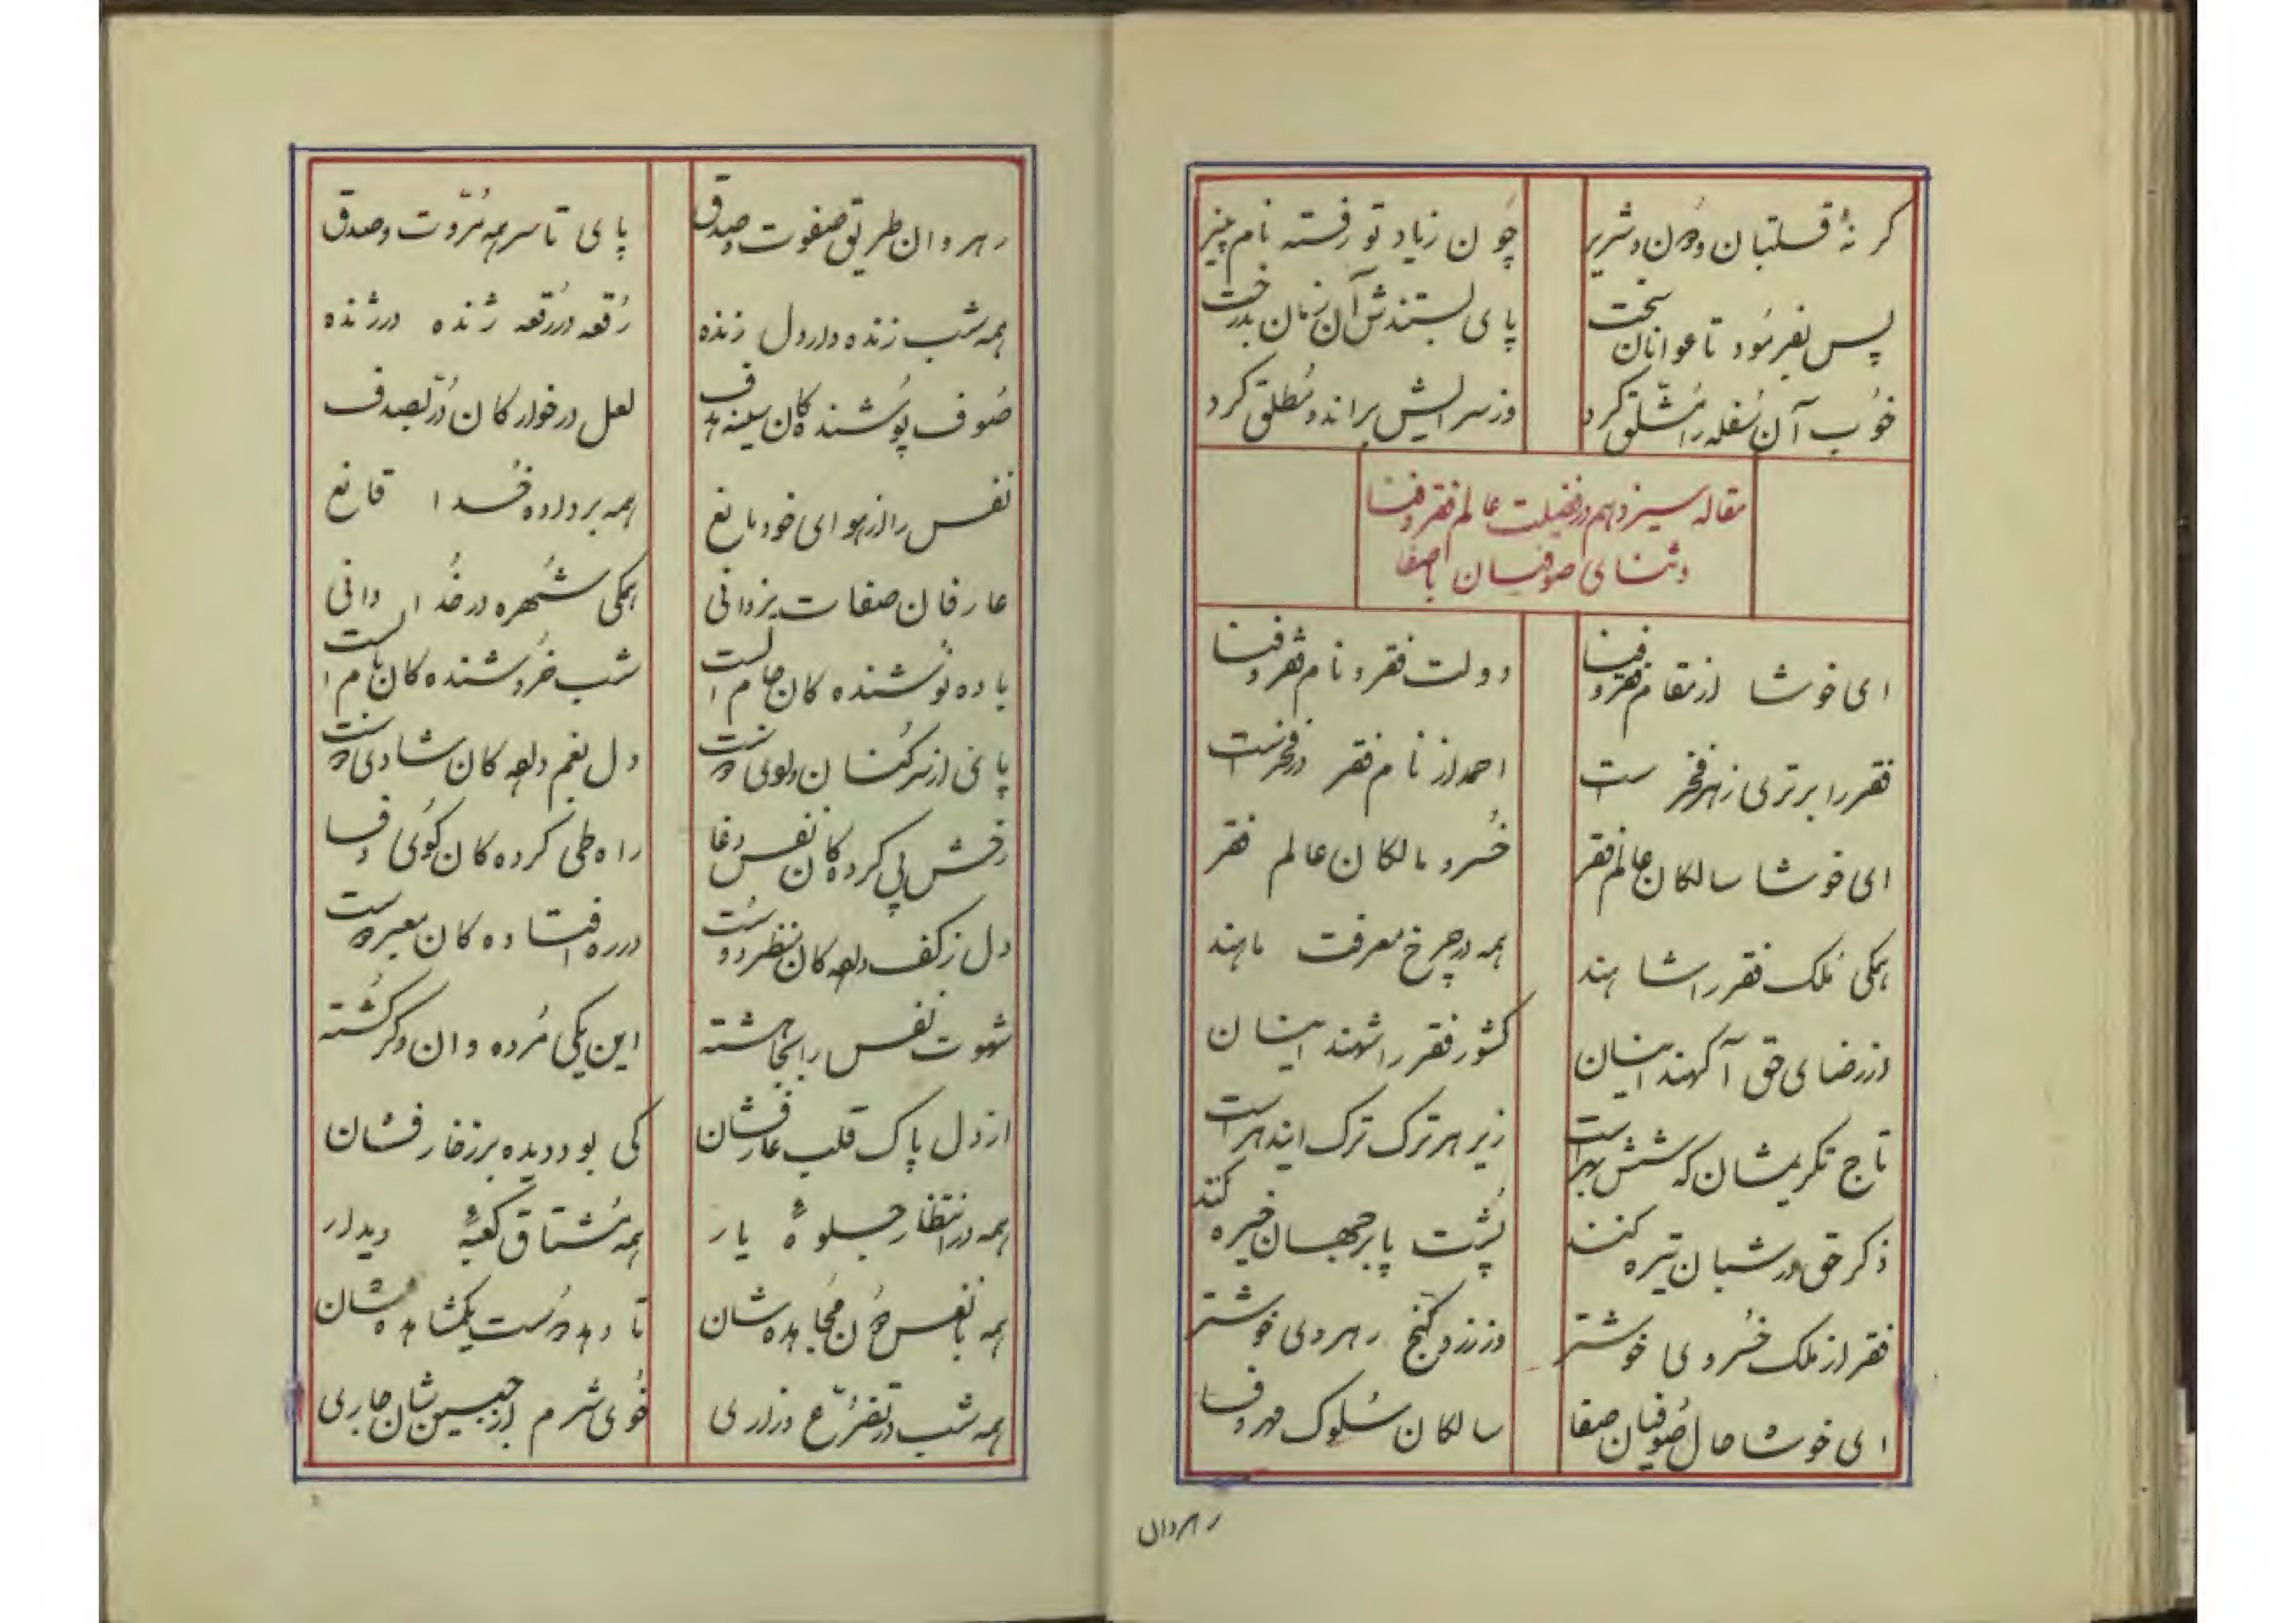 گر نهٔ قلتبان و دون و شریر
چون زیاد تو رفته نام پنیر
پس بفرمود تا عوانان سخت
پای بستندش آن زمان بدرخت
خوب آن سفله را مشلق کرد
وز سرایش براند و مطلق کرد
مقاله سیزدهم در فضیلت عالم فقر و فنا
و ثنای صوفیان باصفا
ای خوشا از مقام فقر و فنا
دولت فقر و نام فقر و فنا
فقر را برتری ز هر فخر ست
احمد از نام فقر در فخرست
ای خوشا سالکان عالم فقر
خسرو مالکان عالم فقر
همگی ملک فقر را شاهند
همه در چرخ معرفت ماهند
از رضای حق آگهند اینان
کشور فقر را شهند اینان
تاج تکریمشان که شش بهراست
زیر هر ترک ترک
ذکر حق در شبان تیره کنند
پشت پا بر جهان خیره کنند
فقر از ملک خسروی خوشتر
وز زر و گنج رهروی خوشتر
ای خوشا حال صوفیان صفا
سالکان سلوک مهر و وفا
رهروان
رهروان طریق صفوت و صدق
پای تا سر همه مروت و صدق
همه شب زنده دار دل زنده
رقعه در رقعه ژنده در ژنده
صوف پوشنده کان سینه هدف
لعل در خوار کان در بصدف
نفس را از هوای خود مانع
همه بر داده خدا قانع
عارفان صفات یزدانی
همگی شهره در خدا دانی
باده نوشنده کان جام الست
شب خروشنده کان نام الست
پای از سر کنان وادی دوست
دل بغم داده کان شادی دوست
رخش پی کرده کان نفس دغا
راه طی کرده کان کوی وفا
دل ز کف داده کان منظر دوست
در ره افتاده کان معبر دوست
شهوت نفس را بجا هشته
این یکی مرده وان دگر کشته
از دل پاک قلب عارفشان
کی بود دیده بر زخارفشان
همه در انتظار جلوهٔ یار
همه مشتاق کعبهٔ دیدار
همه با نفس خون مجاهده شان
تا دهد دست یک مشاهده شان
همه شب در تضرع و زاری
خوی شرم از جبین شان جاری